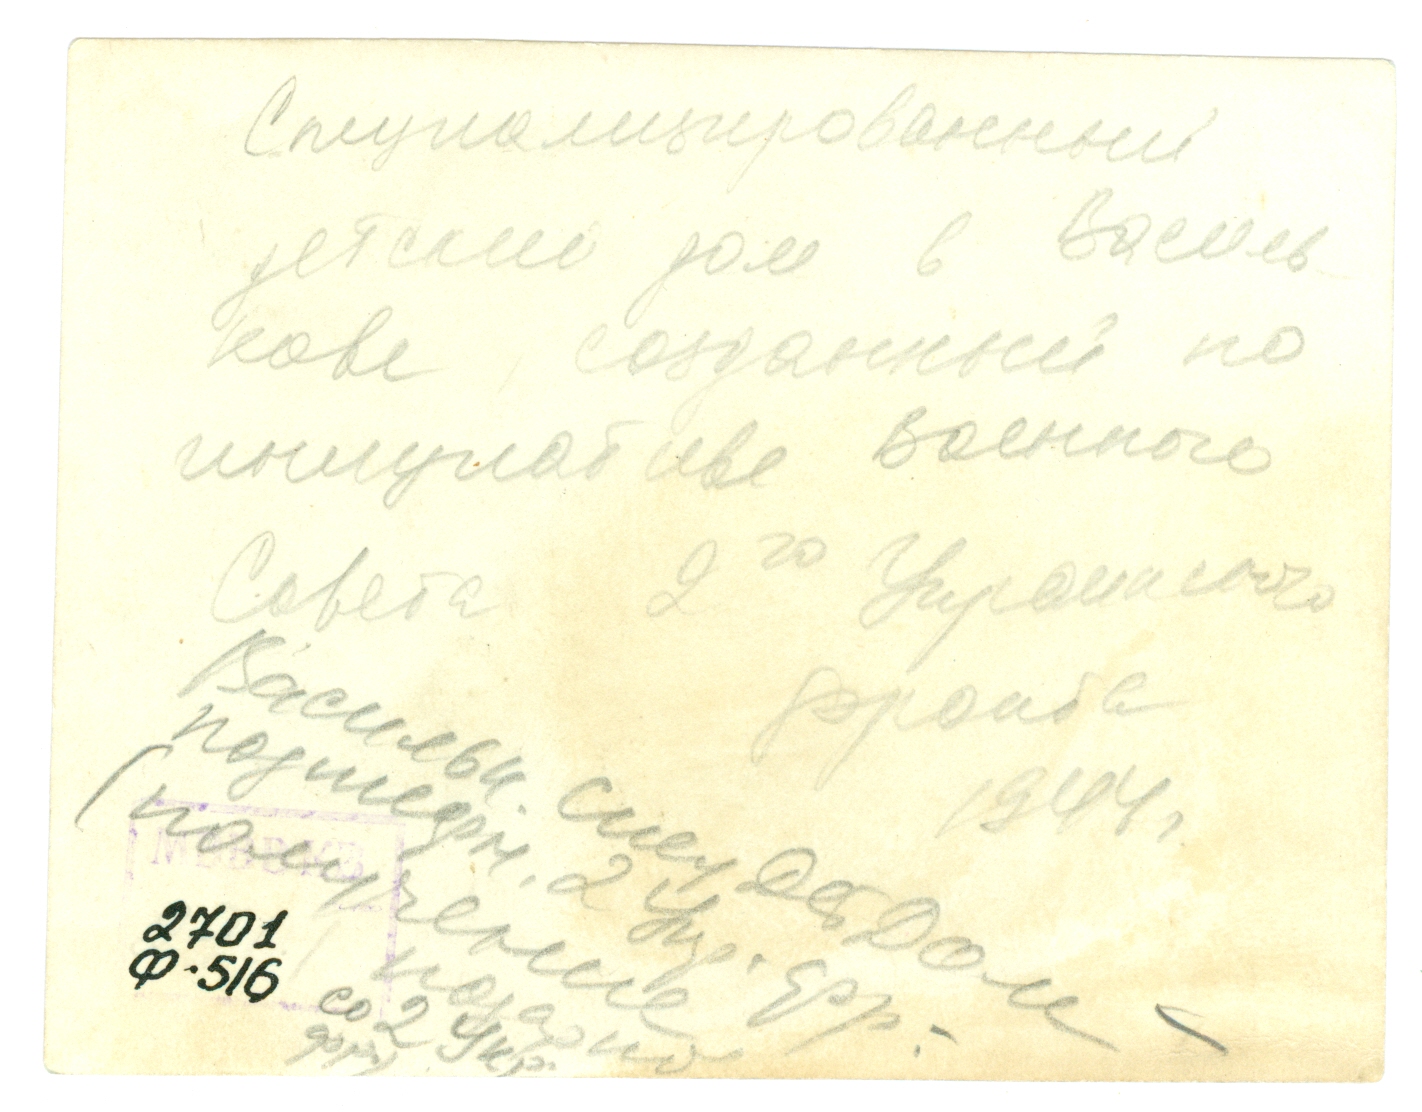 Специализированный
детский дом в Василь
кове, созданный по
инициативе Военного
Совета 2го Украинского
фронта
1944г.
Васильк. спец ДетДом –
подшефн. 2 Укр. фр.
(получение
со 2 Укр.
2701
Ф.516